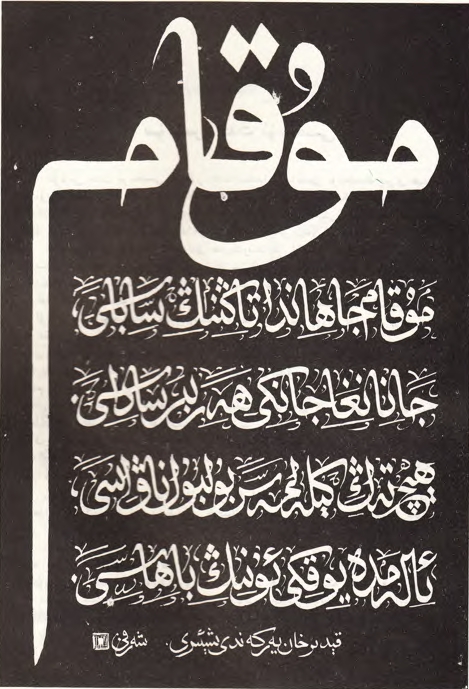 مۇقام
مۇقام جاھاندا تاڭنىڭ ساباسى،
جانانغا جانكى ھەر بىر ساداسى.
ھېچ تەڭ كېلەلمەس بۇلبۇل ناۋاسى،
ئالەمدە يوقكى ئۇنىڭ باھاسى.
قېدىرخان يەركەندى شېئىرى. شەرقى